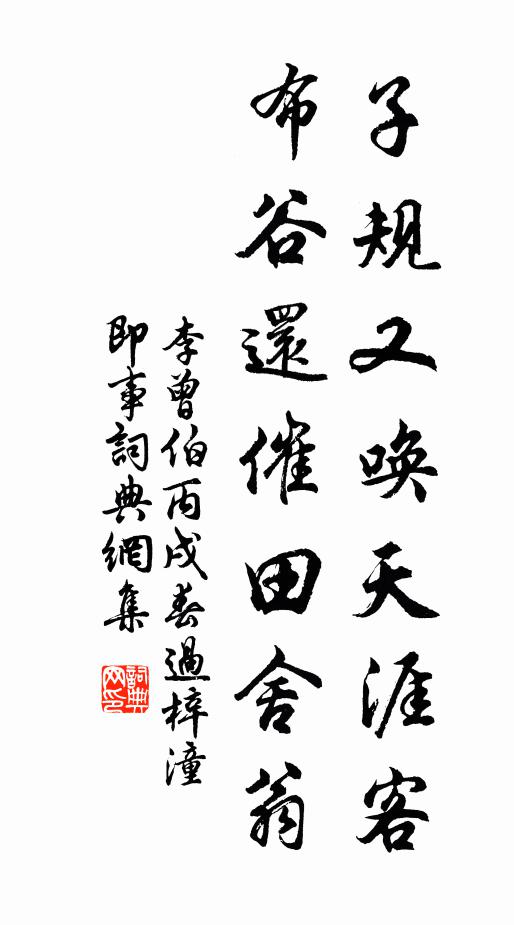 子規又喚天涯客
布谷還催田舍翁
李曾伯丙戌春過梓潼
即事詞典網集
詞典
网印